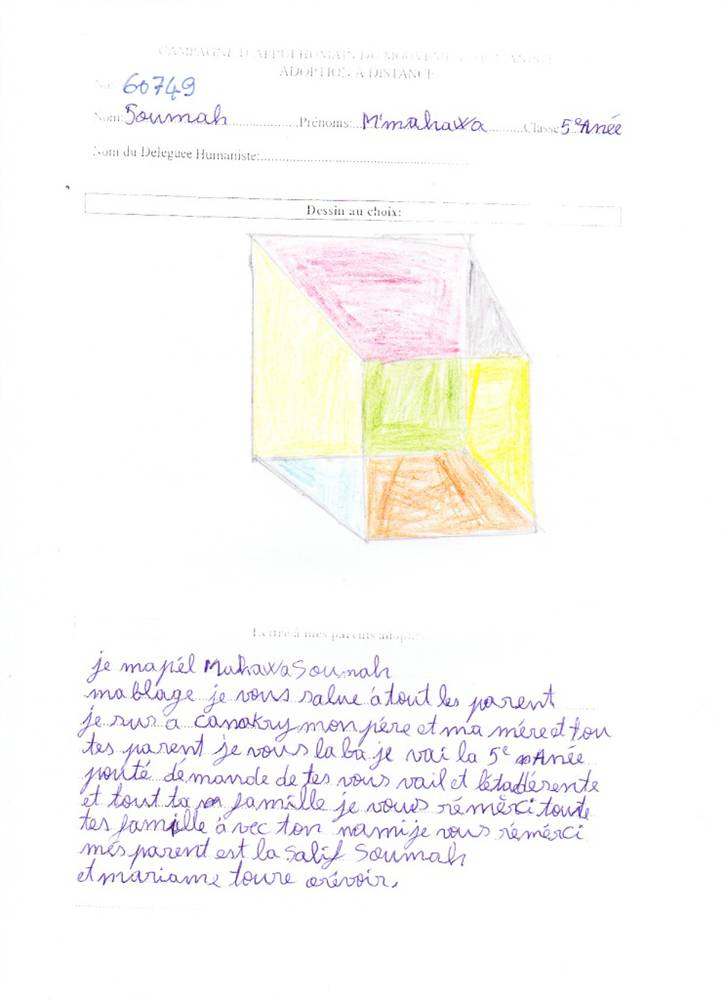 CAMPAGNE D'APPUI HUMAIN DU MOUVEMENT HUMANISTE
ADOPTION A DISTANCE
No: 60749
Nom: Soumah Prénoms: M'mahawa Classe 5e Anée
Nom du Deleguee Humaniste:
Dessin au choix:
Lettre à mes parents adoptifs
je mapél Mahawa Soumah
mablage je vous salue á tout les parent
je sur a canakry mon pére et ma mére et ton
tes parent je vous la ba je vai la 5e Anée
pouté démande de tes vous vail et
et tout ta famille je vous rémérci toute
tes famille á vec ton nami je vous rémérci
més parent est la Salif Soumah
et mariame toure orévoir.